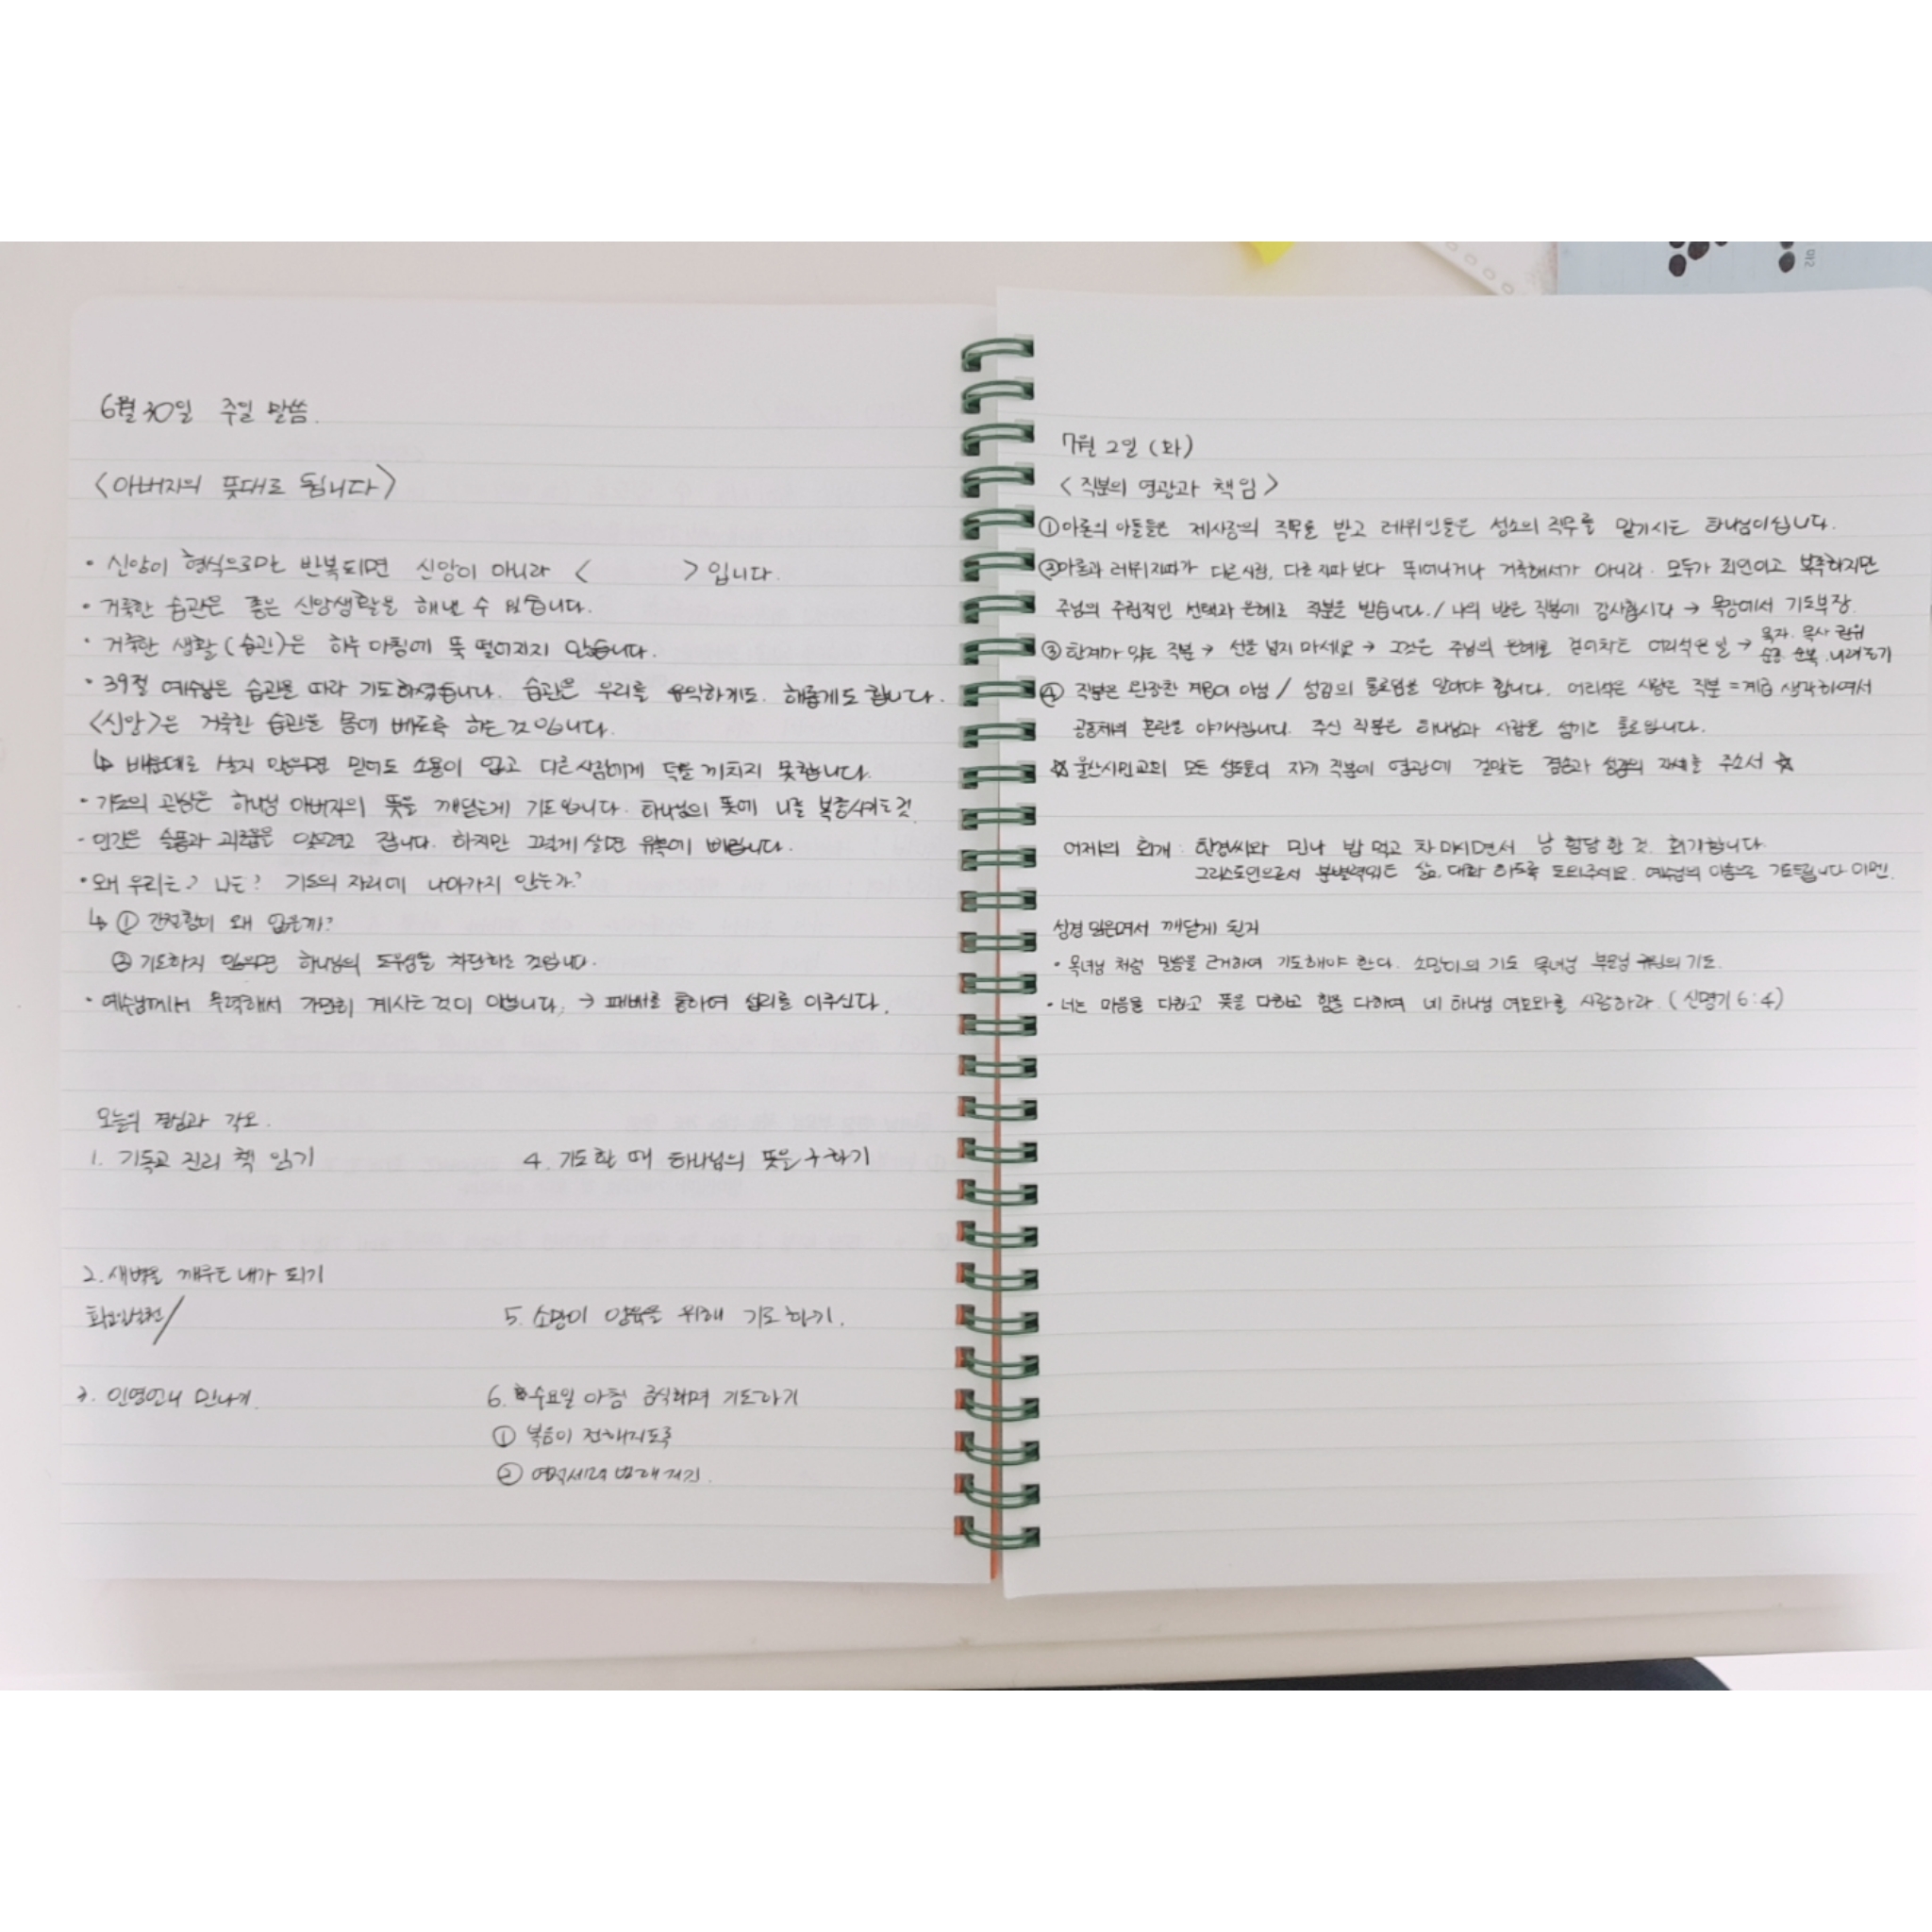 6월 30일 주일 말씀.
<아버지의 뜻대로 됩니다>
• 신앙이 형식으로만 반복되면 신앙이 아니라 < > 입니다.
• 거룩한 습관은 좋은 신앙생활을 해낼 수 있습니다.
• 거룩한 생활(습관)은 하루 아침에 뚝 떨어지지 않습니다.
• 39절 예수님은 습관을 따라 기도하셨습니다. 습관은 우리를 유익하게도. 해롭게도 합니다.
<신앙>은 거룩한 습관을 몸에 배도록 하는 것입니다.
↳ 배운대로 살지 않으면 믿어도 소용이 없고 다른 사람에게 덕을 끼치지 못합니다.
• 기도의 관남은 하나님 아버지의 뜻을 깨닫는게 기도입니다. 하나님의 뜻에 나를 복종시키는 것.
- 인간은 슬픔과 괴로움을 잊으려고 잡니다. 하지만 그렇게 살면 유혹에 빠집니다.
• 왜 우리는? 나는? 기도의 자리에 나아가지 않는가?
↳ ① 간절함이 왜 없을까?
② 기도하지 않으면 하나님의 도우심을 차단하는 것입니다.
• 예수님께서 무력해서 가만히 계시는 것이 아닙니다. → 패배를 통하여 섭리를 이루신다.
오늘의 결심과 각오.
1. 기독교 진리 책 읽기
4. 기도할 때 하나님의 뜻을 구하기
2. 새벽을 깨우는 내가 되기
화요일성전/
5. 소망이 양육을 위해 기도하기.
3. 인영언니 만나기.
6. 수요일 아침 금식하며 기도하기
① 복음이 전해지도록
② 영적세력
7월 2일 (화)
<직분의 영광과 책임>
① 아론의 아들들은 제사장의 직무를 받고 레위인들은 성소의 직무를 맡기시는 하나님이십니다.
② 아론과 레위지파가 다른사람, 다른 지파 보다 뛰어나거나 거룩해서가 아니라. 모두가 죄인이고 부족하지만
주님의 주권적인 선택과 은혜로 직분을 받습니다. / 나의 받은 직분에 감사합시다 → 목장에서 기도부장.
③ 한계가 있는 직분 → 선을 넘지 마세요 → 그것은 주님의 은혜를 걷어차는 어리석은 일 → 목자. 목사 권위
순종. 순복. 내려놓기
④ 직분은 완장찬 계급이 아님 / 섬김의 통로임을 알아야 합니다. 어리석은 사람은 직분 = 계급 생각하여서
공동체의 혼란을 야기시킵니다. 주신 직분은 하나님과 사람을 섬기는 통로입니다.
☆ 울산시민교회 모든 성도들이 자기 직분이 영광에 걸맞는 겸손과 섬김의 자세를 주소서 ☆
어제의 회개 : 한경씨와 만나 밥 먹고 차 마시면서 남 험담한 것. 회개합니다.
그리스도인으로서 분별력있는 삶. 대화 하도록 도와주세요. 예수님의 이름으로 기도드립니다 아멘.
성경 읽으면서 깨닫게 된지
• 목녀님 처럼 말씀을 근거하여 기도해야 한다. 소망이의 기도 목녀님 부모님 의 기도.
• 너는 마음을 다하고 뜻을 다하고 힘을 다하여 네 하나님 여호와를 사랑하라. (신명기 6:4)